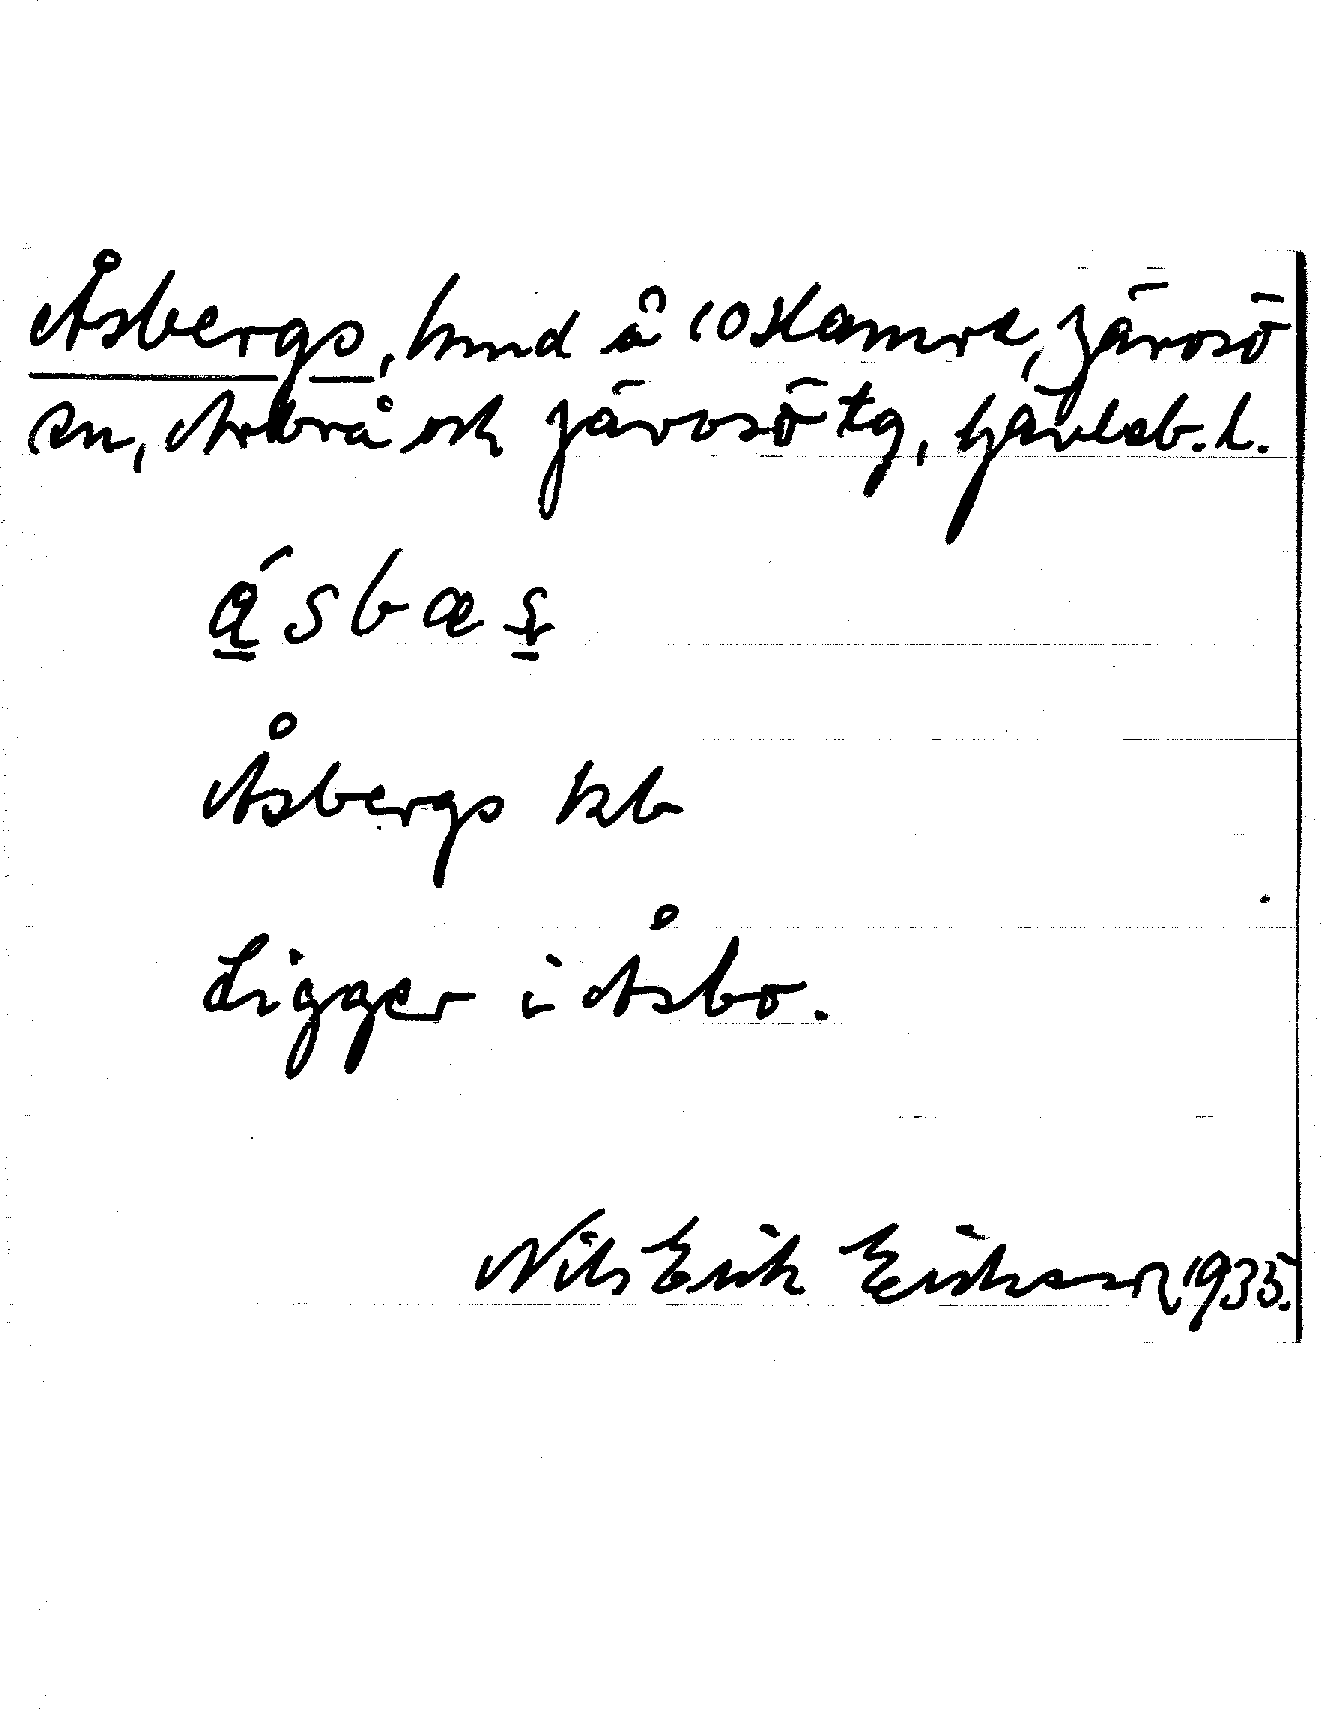 Åsbergs, hmd å 10 Hamra, Järvsö
sn, Arbrå och Järvsö tg, Gävleb. l.
ǻsbæs̠
Åsbergs kb
Ligger i Åsbo.
Nils Erik Eriksson 1935.